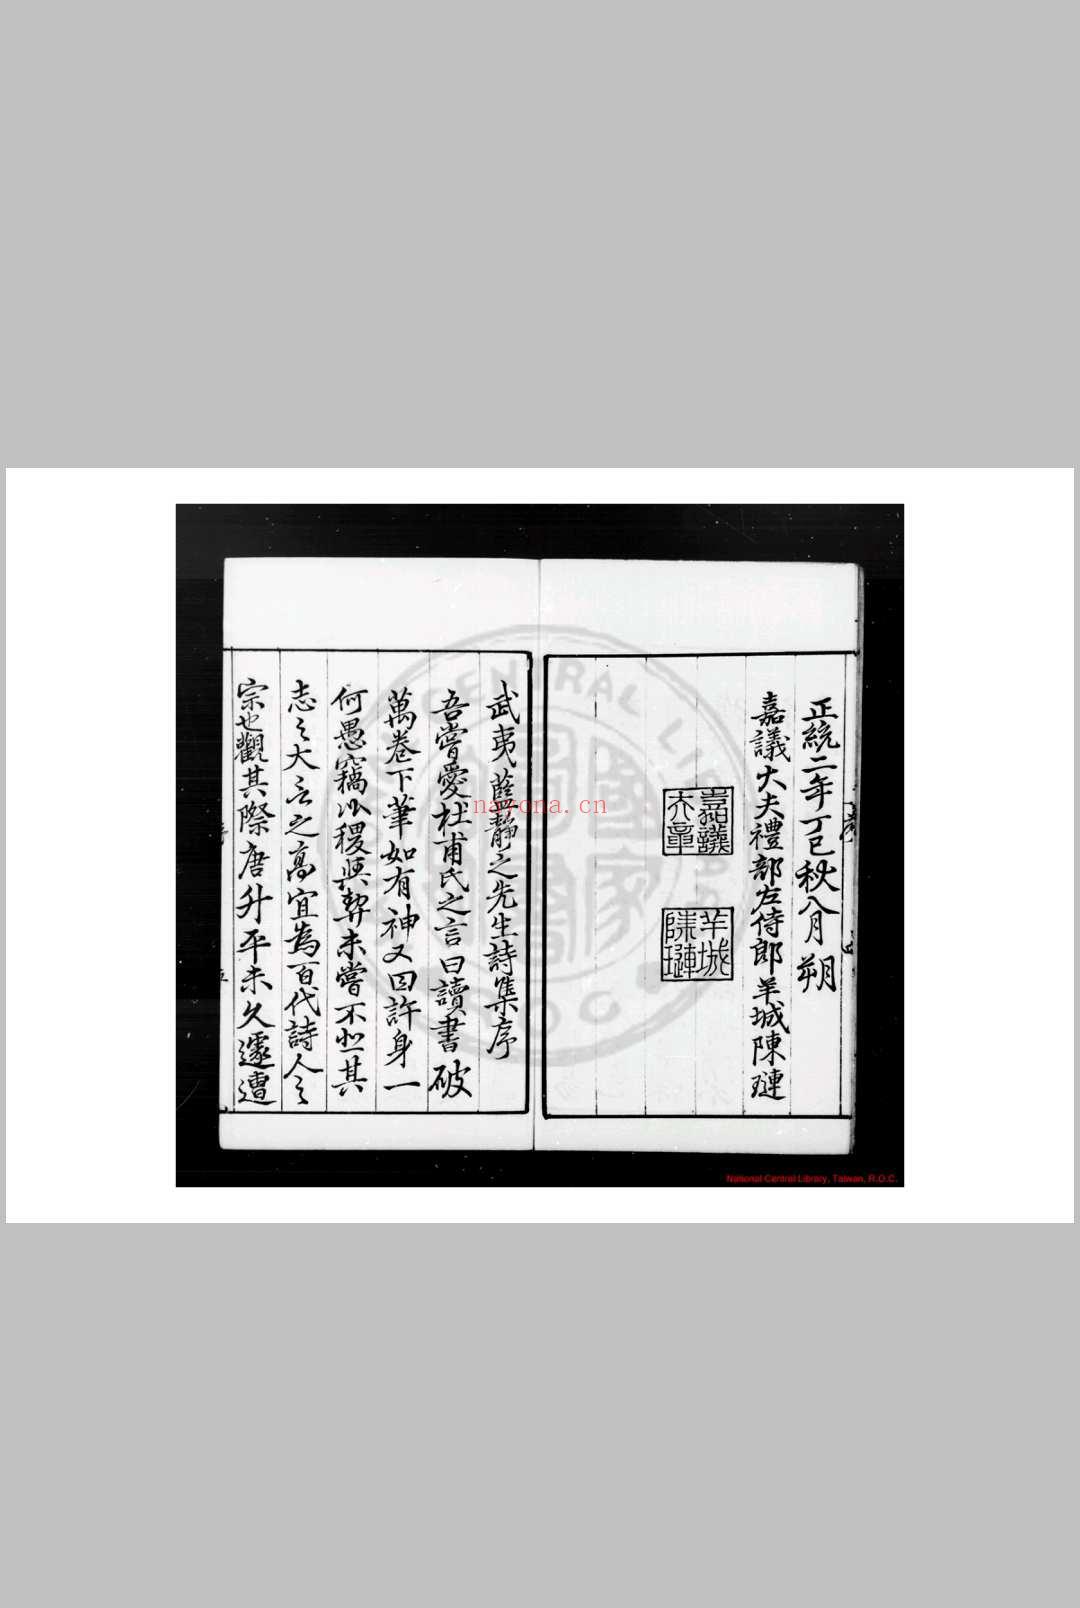 正統二年丁巳秋八月朔
嘉議大夫禮部左侍郎羊城陳璉
嘉議
大章
羊城
陳璉
武夷藍靜之先生詩集序
吾嘗愛杜甫氏之言曰讀書破
萬卷下筆如有神又曰許身一
何愚竊比稷與契未嘗不悲其
志之大言之高宜為百代詩人之
宗也觀其際唐升平未久遽遭
CENTRAL LIBRARY
R.O.C.
nayona.cn
National Central Library, Taiwan, R.O.C.